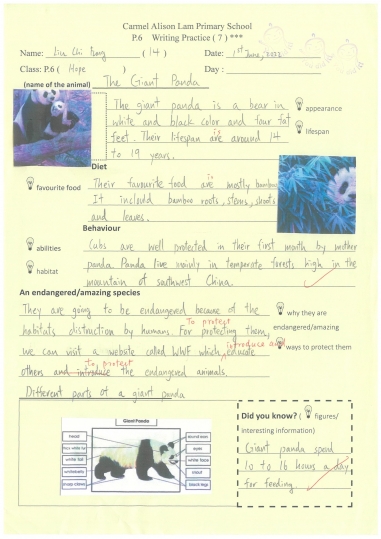 Carmel Alison Lam Primary School
P.6 Writing Practice ( 7 ) ***
Name: Liu Chi ( 14 ) Date: 1st June, 2022
Class: P.6 ( Hope ) Day :
(name of the animal) The Giant Panda
The giant panda is a bear in
white and black color and four fat
feet. Their lifespan are around 14
is
to 19 years.
appearance
lifespan
Diet
favourite food
Their favourite food are mostly bamboos
is
It includ bamboo roots, stems, shoots
and leaves.
Behaviour
abilities
habitat
Cubs are well protected in their first month by mother
panda. Panda live mainly in temperate forests high in the
mountain of southwest China.
An endangered/amazing species
They are going to be endangered because of the
habitats distruction by humans. For protecting them,
To protect
we can visit a website called WWF which educate
introduce and
others and introduce the endangered animals.
to protect
why they are
endangered/amazing
ways to protect them
Different parts of a giant panda
Giant Panda
head
white tail
white belly
round ears
eyes
white face
black legs
Did you know? ( figures/
interesting information)
Giant panda spend
10 to 16 hours a day
for feeding.